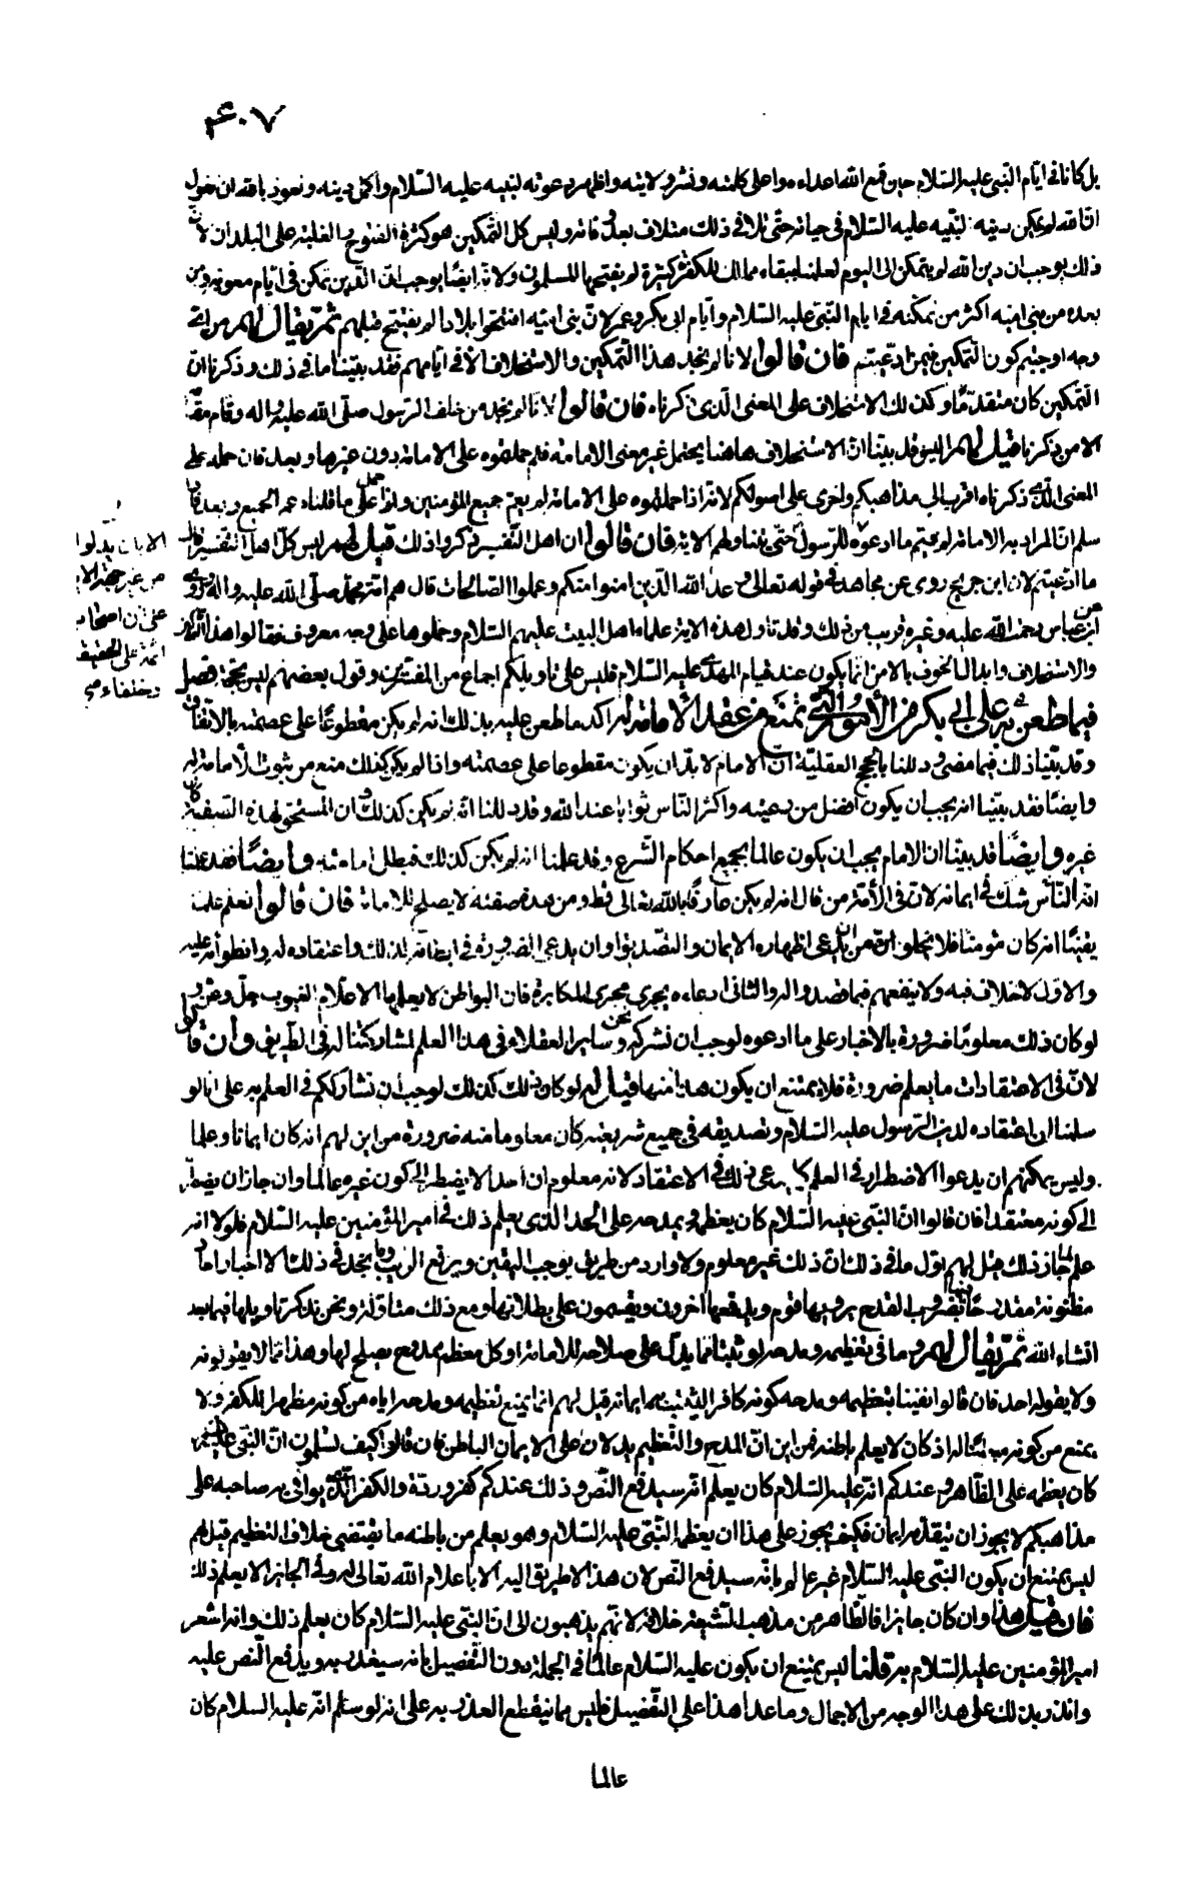 ٤٠٧
بل كانا في ايّام النّبي عليه السّلام حين قمع الله اعداءه واعلى كلمته ونشر ولايته واظهر دعوته لنبيه عليه السّلام واكمل دينه ونعوذ بالله ان نقول
انّ الله لم يمكن دينه لنبيّه عليه السّلام في حياته حتّى تلافى ذلك متلاف بعد وفاته وليس كل التّمكين هو كثرة الفتوح والغلبة على البلدان لانّ
ذلك يوجب ان دين الله لم يتمكن الى اليوم لعلمنا ببقاء ممالك للكفر كثيرة لم يفتحها المسلمون ولانه ايضًا يوجب انّ الدّين تمكن في ايّام معوية ومن
بعده من بني اميّه اكثر من تمكنه في ايام النّبي عليه السّلام وايّام ابي بكر وعمر لانّ بني اميّه افتتحوا بلادا لم يفتتح قبلهم ثمّ يقال لهم من ايّ
وجه اوجبتم كون التّمكين فيمن ادّعيتم فان قالوا لانا لم نجد هذا التّمكين والاستخلاف الّا في ايّامهم فقد بيّنا ما في ذلك وذكرنا انّ
التّمكين كان متقدّمًا وكذلك الاستخلاف على المعنى الّذي ذكرناه فان قالوا لانّا لم نجد من خلف الرّسول صلّى الله عليه واله وقام مقامه
الا من ذكرنا قيل لهم اليس قد بيّنا انّ الاستخلاف هاهنا يحتمل غير معنى الامامة فلم حملتموه على الامامة دون غيرها وبعد فان حمله على
المعنى الّذي ذكرناه اقرب الى مذاهبكم واخرى على اصولكم لانّه اذا حملتموه على الامامة لم يعم جميع المؤمنين واذا حمل على ما قلناه عم الجميع وبعد فلو
سلم انّ المراد به الامامة لم يتم ما ادعوه للرّسول حتّى يتناولهم الاية فان قالوا ان اهل التّفسير ذكروا ذلك قيل لهم ليس كلّ اهل التّفسير قال
ما ادّعيتم لان ابن جريج روى عن مجاهد في قوله تعالى وعد الله الّذين امنوا منكم وعملوا الصّالحات قال هم امّة محمّد صلّى الله عليه واله وروى
عن ابن عبّاس رحمة الله عليه وغيره قريب من ذلك وقد تاول هذه الاية علماء اهل البيت عليهم السّلام وحملوها على وجه معروف فقالوا هذا التّمكن
والاستخلاف وابدال الخوف بالامن انّما يكون عند قيام المهدي عليه السّلام فليس على تاويلكم اجماع من المفسّرين وقول بعضهم ليس بحجّة فصل
فيما طعن به على ابي بكر من الامور الّتي تمنع من عقد الامامة له اكد ما طعن عليه بذلك انه لم يكن مقطوعًا على عصمته بالاتّفاق
وقد بيّنا ذلك فيما مضى ودللنا بالحجج العقليّة انّ الامام لا بدّ ان يكون مقطوعا على عصمته واذا لم يكن كذلك منع من ثبوت الامامة له
وايضًا فقد بيّنا انّه يجب ان يكون افضل من رعيته واكثر النّاس ثوابا عند الله وقد دللنا انّه لم يكن كذلك وانّ المستحق لهذه الصّفة كان
غيره وايضًا قد بيّنا ان الامام يجب ان يكون عالما بجميع احكام الشّرع وقد علمنا انه لم يكن كذلك فبطل امامته وايضًا فقد علمنا
انّ النّاس شك في ايمانه لانّ في الامّة من قال انه لم يكن عارفًا بالله تعالى قط ومن هذه صفته لا يصلح للامامة فان قالوا نعلم علما
يقينًا انه كان مؤمنًا فلا يخلو امن ان يدّعي اظهاره الايمان والتّصديق او ان يدعي الضّرورة في ابطانه لذلك واعتقاده له وانطوائه عليه
والاوّل لا خلاف فيه ولا ينفعهم فيما قصدوا له والثاني ادعاءه يجري مجرى المكابرة فان البواطن لا يعلمها الا علّام الغيوب جلّ وعزّ و
لو كان ذلك معلومًا ضرورة بالاخبار على ما ادعوه لوجب ان نشركهم نحن وساير العقلاء في هذا العلم لمشاركتنا لهم في الطّريق وان قالوا
لانّ في الاعتقادات ما يعلم ضرورة فلا يمتنع ان يكون هذا منها قيل لهم لو كان ذلك كذلك لوجب ان نشارككم في العلم به على انا لو
سلمنا الى اعتقاده لدين الرّسول عليه السّلام وتصديقه في جميع شريعته كان معلوما منه ضرورة من اين لهم انه كان ايمانا وعلما
وليس يمكنهم ان يدعوا الاضطرار في العلم كما يدعى ذلك في الاعتقاد لانه معلوم ان احدا لا يضطر الى كون غيره عالما وان جاز ان يضطر
الى كونه معتقدا فان قالوا انّ النّبي عليه السّلام كان يعظمه ويمدحه على الحد الذي يعلم ذلك في امير المؤمنين عليه السّلام فلولا انه
علم لما جاز ذلك قيل لهم اوّل ما في ذلك انّ ذلك غير معلوم ولا وارد من طريق يوجب اليقين ويرفع الريب وما نجد في ذلك الا اخبارا احادا
مظنونة يرويها قوم ويدفعها اخرون ويقيمون على بطلانها ومع ذلك متاوّلة ونحن نذكر تاويلها فيما بعد
انشاء الله ثمّ يقال لهم وما في تعظيمه ومدحه لو ثبتا مما يدلّ على صلاحه للامامة او كل معظم ممدوح يصلح لها وهذا ممّا لا يقولونه
ولا يقوله احد فان قالوا نفينا بتعظيمه ومدحه كونه كافرا ليثبت بهما ايمانه قيل لهم انما يمنع تعظيمه ومدحه اياه من كونه مظهرا للكفر ولا
يمنع من كونه مبطنًا له اذ كان لا يعلم باطنه فمن اين انّ المدح والتّعظيم يدلان على الايمان الباطن فان قالوا كيف تسلمون انّ النّبي عليه السّلام
كان يعظمه على الظّاهر وعندكم انّه عليه السّلام كان يعلم انّه سيدفع النّص وذلك عندكم كفر وردّة والكفر الّذي يوافي به صاحبه على
مذاهبكم لا يجوز ان يتقدّمه ايمان فكيف يجوز على هذا ان يعظمه النّبي عليه السّلام وهو يعلم من باطنه ما يقتضي خلاف التعظيم قيل لهم
ليس يمتنع ان يكون النّبي عليه السّلام غير عالم بانّه سيدفع النّص لان هذا لا طريق اليه الا باعلام الله تعالى له وفي الجايز الا يعلم ذلك
فان قيل هذا وان كان جايزا فالظّاهر من مذهب الشّيعة خلافه لانّهم يذهبون الى انّ النّبي عليه السّلام كان يعلم ذلك وانه اشعر
امير المؤمنين عليه السّلام به قلنا ليس يمتنع ان يكون عليه السّلام عالمًا في الجملة دون التّفصيل بانه سيغدر به ويدفع النّص عليه
وانذر بذلك على هذا الوجه من الاجمال وما عدا هذا على التّفصيل فليس مما ينقطع العذر به على انه لو سلم انّه عليه السلام كان
عالما
الايات
من غير جهة الا
على ان اصحاب
ائمة على الحقيقة
وخلفاء